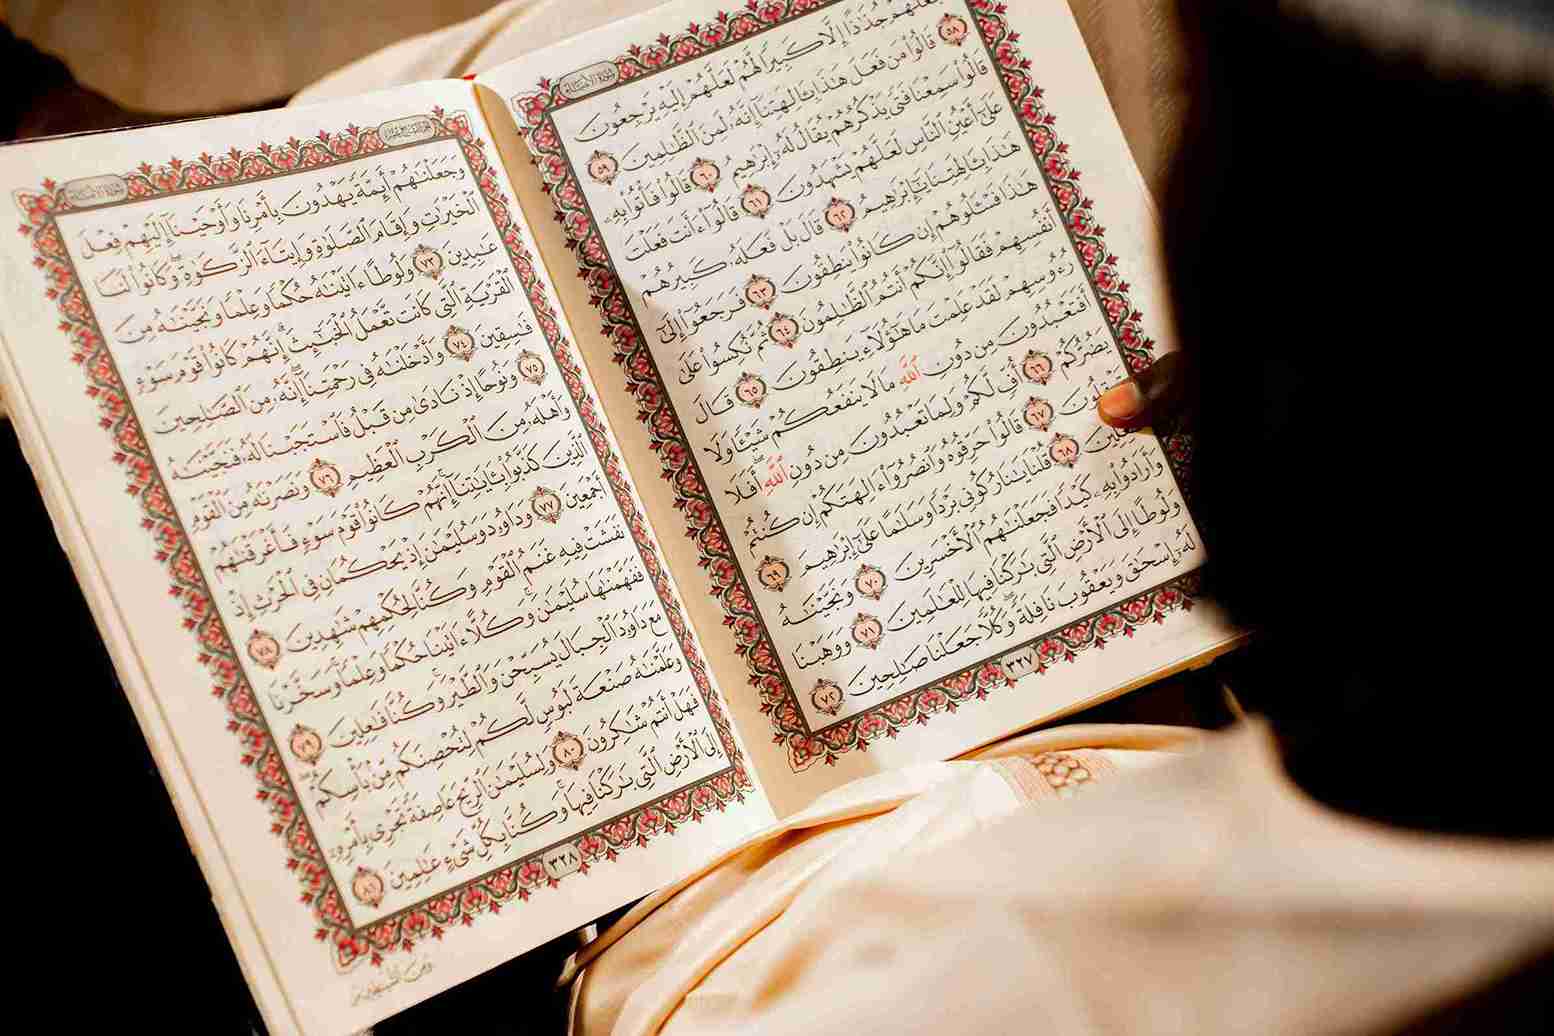 سُورَةُ الأَنبِيَاءِ
فَجَعَلَهُمْ جُذَٰذًا إِلَّا كَبِيرًا لَّهُمْ لَعَلَّهُمْ إِلَيْهِ يَرْجِعُونَ
٥٨ قَالُوا۟ مَن فَعَلَ هَٰذَا بِـَٔالِهَتِنَآ إِنَّهُۥ لَمِنَ ٱلظَّٰلِمِينَ ٥٩
قَالُوا۟ سَمِعْنَا فَتًى يَذْكُرُهُمْ يُقَالُ لَهُۥٓ إِبْرَٰهِيمُ ٦٠ قَالُوا۟ فَأْتُوا۟ بِهِۦ
عَلَىٰٓ أَعْيُنِ ٱلنَّاسِ لَعَلَّهُمْ يَشْهَدُونَ ٦١ قَالُوٓا۟ ءَأَنتَ فَعَلْتَ
هَٰذَا بِـَٔالِهَتِنَا يَٰٓإِبْرَٰهِيمُ ٦٢ قَالَ بَلْ فَعَلَهُۥ كَبِيرُهُمْ
هَٰذَا فَسْـَٔلُوهُمْ إِن كَانُوا۟ يَنطِقُونَ ٦٣ فَرَجَعُوٓا۟ إِلَىٰٓ
أَنفُسِهِمْ فَقَالُوٓا۟ إِنَّكُمْ أَنتُمُ ٱلظَّٰلِمُونَ ٦٤ ثُمَّ نُكِسُوا۟ عَلَىٰ
رُءُوسِهِمْ لَقَدْ عَلِمْتَ مَا هَٰٓؤُلَآءِ يَنطِقُونَ ٦٥ قَالَ
أَفَتَعْبُدُونَ مِن دُونِ ٱللَّهِ مَا لَا يَنفَعُكُمْ شَيْـًٔا وَلَا
يَضُرُّكُمْ ٦٦ أُفٍّ لَّكُمْ وَلِمَا تَعْبُدُونَ مِن دُونِ ٱللَّهِ ۖ أَفَلَا
٦٧ قَالُوا۟ حَرِّقُوهُ وَٱنصُرُوٓا۟ ءَالِهَتَكُمْ إِن كُنتُمْ
٦٨ قُلْنَا يَٰنَارُ كُونِى بَرْدًا وَسَلَٰمًا عَلَىٰٓ إِبْرَٰهِيمَ ٦٩
وَأَرَادُوا۟ بِهِۦ كَيْدًا فَجَعَلْنَٰهُمُ ٱلْأَخْسَرِينَ ٧٠ وَنَجَّيْنَٰهُ
وَلُوطًا إِلَى ٱلْأَرْضِ ٱلَّتِى بَٰرَكْنَا فِيهَا لِلْعَٰلَمِينَ ٧١ وَوَهَبْنَا
لَهُۥٓ إِسْحَٰقَ وَيَعْقُوبَ نَافِلَةً ۖ وَكُلًّا جَعَلْنَا صَٰلِحِينَ ٧٢
٣٢٧
سُورَةُ الأَنبِيَاءِ
وَجَعَلْنَٰهُمْ أَئِمَّةً يَهْدُونَ بِأَمْرِنَا وَأَوْحَيْنَآ إِلَيْهِمْ فِعْلَ
ٱلْخَيْرَٰتِ وَإِقَامَ ٱلصَّلَوٰةِ وَإِيتَآءَ ٱلزَّكَوٰةِ ۖ وَكَانُوا۟ لَنَا
عَٰبِدِينَ ٧٣ وَلُوطًا ءَاتَيْنَٰهُ حُكْمًا وَعِلْمًا وَنَجَّيْنَٰهُ مِنَ
ٱلْقَرْيَةِ ٱلَّتِى كَانَت تَّعْمَلُ ٱلْخَبَٰٓئِثَ ۗ إِنَّهُمْ كَانُوا۟ قَوْمَ سَوْءٍ
فَٰسِقِينَ ٧٤ وَأَدْخَلْنَٰهُ فِى رَحْمَتِنَآ ۖ إِنَّهُۥ مِنَ ٱلصَّٰلِحِينَ
٧٥ وَنُوحًا إِذْ نَادَىٰ مِن قَبْلُ فَٱسْتَجَبْنَا لَهُۥ فَنَجَّيْنَٰهُ
وَأَهْلَهُۥ مِنَ ٱلْكَرْبِ ٱلْعَظِيمِ ٧٦ وَنَصَرْنَٰهُ مِنَ ٱلْقَوْمِ
ٱلَّذِينَ كَذَّبُوا۟ بِـَٔايَٰتِنَآ ۚ إِنَّهُمْ كَانُوا۟ قَوْمَ سَوْءٍ فَأَغْرَقْنَٰهُمْ
أَجْمَعِينَ ٧٧ وَدَاوُۥدَ وَسُلَيْمَٰنَ إِذْ يَحْكُمَانِ فِى ٱلْحَرْثِ إِذْ
نَفَشَتْ فِيهِ غَنَمُ ٱلْقَوْمِ وَكُنَّا لِحُكْمِهِمْ شَٰهِدِينَ ٧٨
فَفَهَّمْنَٰهَا سُلَيْمَٰنَ ۚ وَكُلًّا ءَاتَيْنَا حُكْمًا وَعِلْمًا ۚ وَسَخَّرْنَا
مَعَ دَاوُۥدَ ٱلْجِبَالَ يُسَبِّحْنَ وَٱلطَّيْرَ ۚ وَكُنَّا فَٰعِلِينَ ٧٩
وَعَلَّمْنَٰهُ صَنْعَةَ لَبُوسٍ لَّكُمْ لِتُحْصِنَكُم مِّنۢ بَأْسِكُمْ ۖ
فَهَلْ أَنتُمْ شَٰكِرُونَ ٨٠ وَلِسُلَيْمَٰنَ ٱلرِّيحَ عَاصِفَةً تَجْرِى بِأَمْرِهِۦٓ
إِلَى ٱلْأَرْضِ ٱلَّتِى بَٰرَكْنَا فِيهَا ۚ وَكُنَّا بِكُلِّ شَىْءٍ عَٰلِمِينَ ٨١
٣٢٨